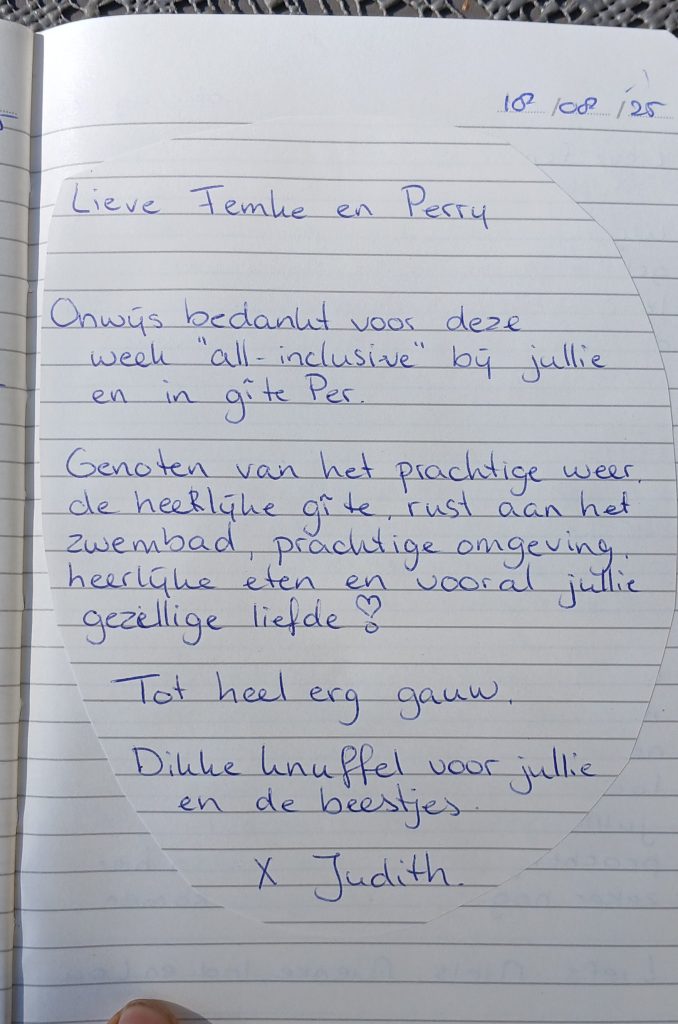 18/08/25
Lieve Femke en Perry
Onwijs bedankt voor deze
week "all-inclusive" bij jullie
en in gîte Per.
Genoten van het prachtige weer,
de heerlijke gîte, rust aan het
zwembad, prachtige omgeving,
heerlijke eten en vooral jullie
gezellige liefde!
Tot heel erg gauw.
Dikke knuffel voor jullie
en de beestjes.
X Judith.